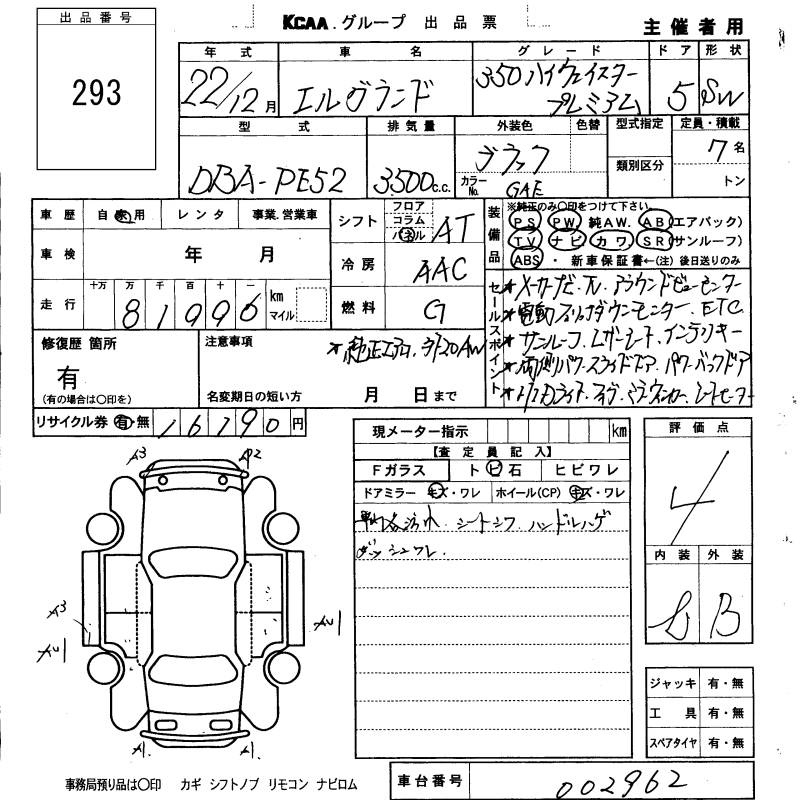 出品番号
293
KCAA.グループ 出品票
主催者用
年式 車名 グレード ドア 形状
22/12月 エルグランド 350 ハイウェイスター プレミアム 5 SW
型式 排気量 外装色 色替 型式指定 定員・積載
DBA-PE52 3500c.c. ブラック
カラーNo. GAE
類別区分
7名
トン
車歴 自家用 レンタ 事業.営業車
車検 年 月
走行 十万 万 千 百 十 一
81996 km マイル
シフト フロア コラム パネル AT
冷房 AAC
燃料 G
装備品
※純正のみ〇印をつけて下さい。
PS PW 純AW. AB(エアバック)
TV ナビ カワ SR(サンルーフ)
ABS ・ 新車保証書←(注)後日送りのみ
セールスポイント
*メーカーナビ.TV.アラウンドビューモニター
*電動フリップダウンモニター.ETC
*サンルーフ.レザーシート.インテリキー
*両側パワースライドドア.パワーバックドア
修復歴 箇所
有
(有の場合は〇印を)
注意事項
*純正エアロ.
名変期日の短い方 月 日まで
リサイクル券 有・無 16190円
現メーター指示 km
【査定員記入】
Fガラス トビ石 ヒビワレ
ドアミラー キズ・ワレ ホイール(CP) キズ・ワレ
シートシワ ハンドルハゲ
評価点
4
内装 外装
B
A3 A2
A3
A1 A1
ジャッキ 有・無
工具 有・無
スペアタイヤ 有・無
事務局預り品は〇印 カギ シフトノブ リモコン ナビロム
車台番号 002962